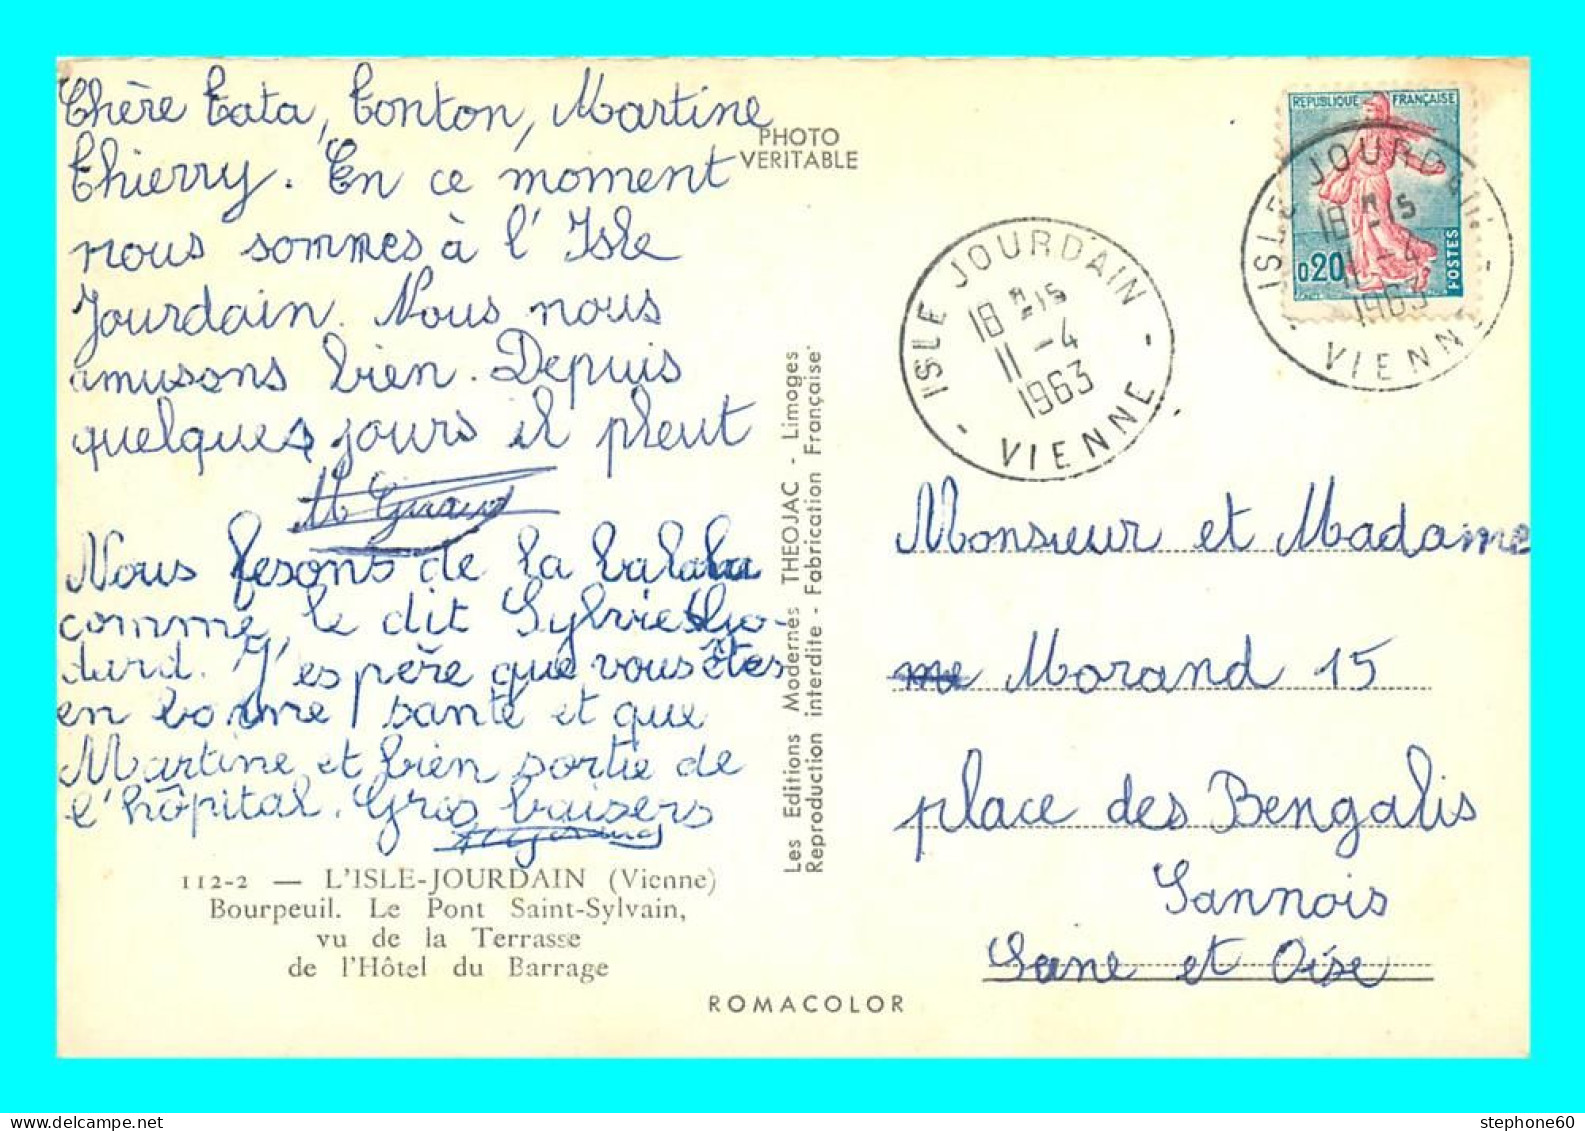 Chère Tata, Tonton, Martine
Thierry. En ce moment
nous sommes à l'Isle
Jourdain. Nous nous
amusons bien. Depuis
quelques jours il pleut
Nous fesons de la
comme, le dit Sylvie
J'espère que vous êtes
en bonne santé et que
Martine et bien sortie de
l'hôpital. Gros baisers
112-2 — L'ISLE-JOURDAIN (Vienne)
Bourpeuil. Le Pont Saint-Sylvain,
vu de la Terrasse
de l'Hôtel du Barrage
PHOTO
VERITABLE
Les Editions Modernes THEOJAC - Limoges
Reproduction interdite - Fabrication Française
ROMACOLOR
ISLE JOURDAIN
18H-15
11-4
1963
- VIENNE -
REPUBLIQUE FRANÇAISE
0,20
POSTES
ISLE JOURDAIN
18H-15
11-4
1963
- VIENNE -
Monsieur et Madame
Morand 15
place des Bengalis
Sannois
Seine et Oise
stephone60